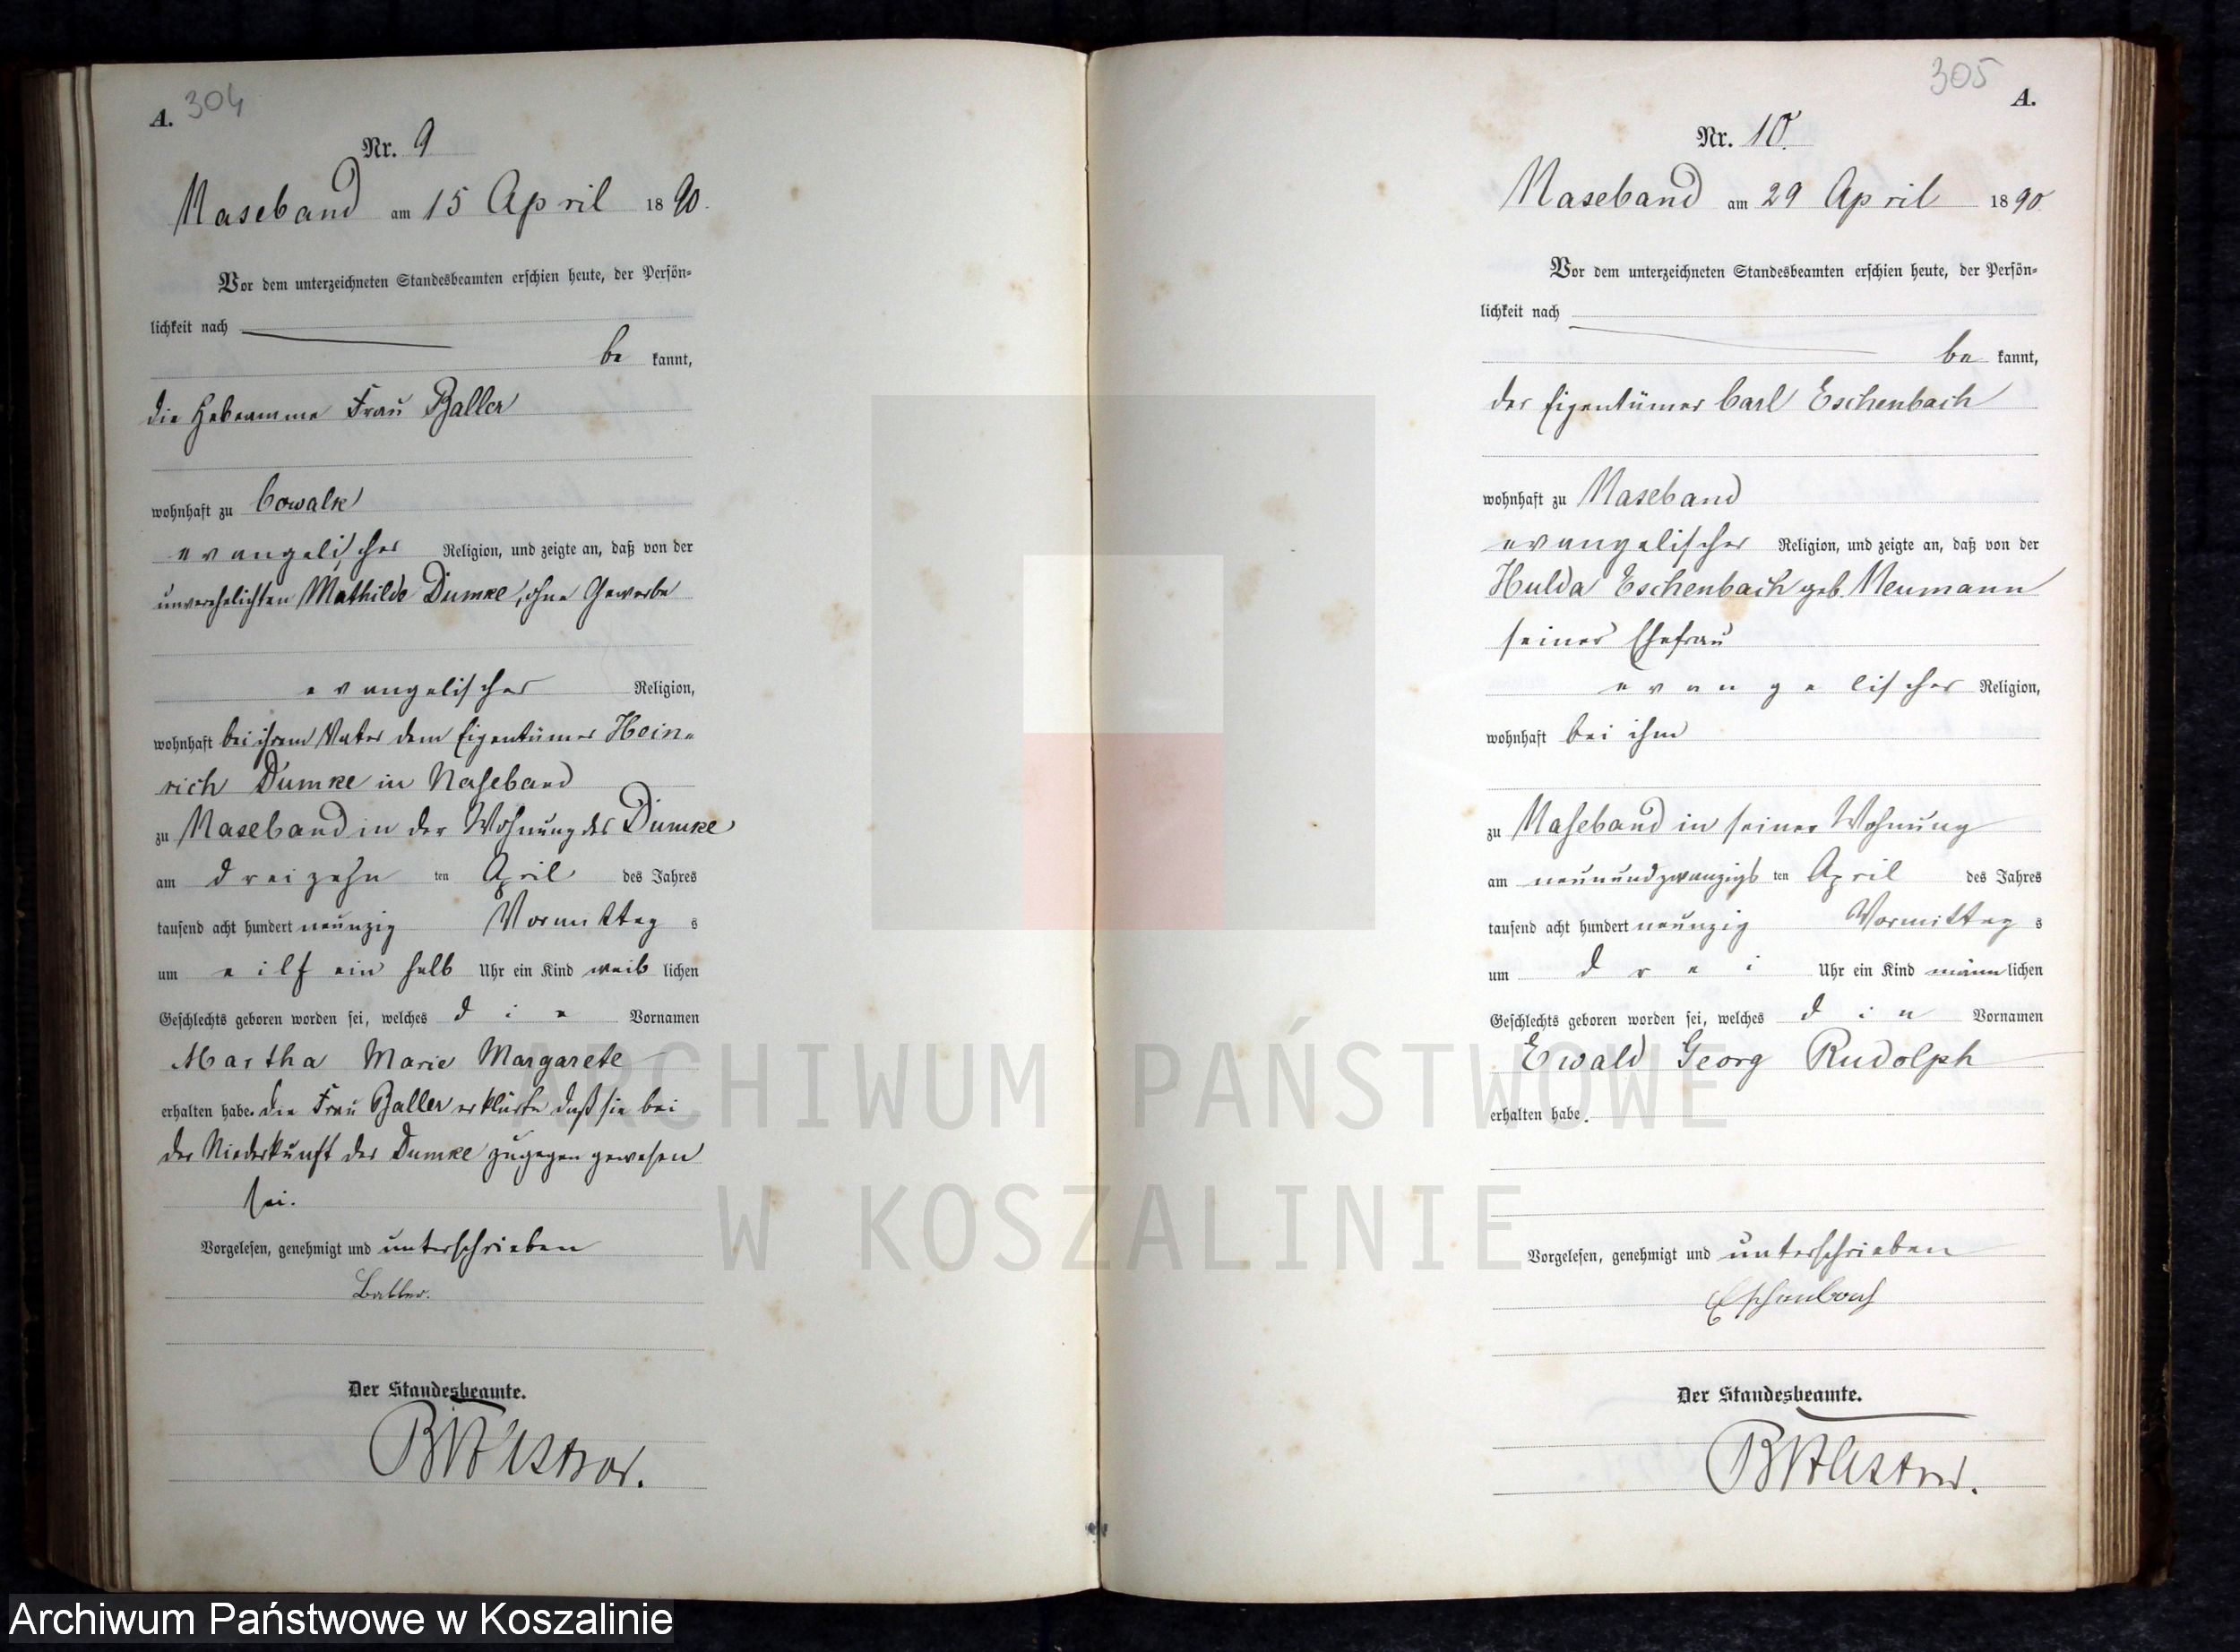 304
A.
Nr. 9
Naseband am 15 April 1890.
Vor dem unterzeichneten Standesbeamten erschien heute, der Persön-
lichkeit nach
be kannt,
die Hebeamme Frau Baller
wohnhaft zu Cowalk
evangelischer Religion, und zeigte an, daß von der
unverehelichten Mathilde Dumke, ohne Gewerbe
evangelischer Religion,
wohnhaft bei ihrem Vater dem Eigentümer Hein-
rich Dumke in Naseband
zu Naseband in der Wohnung des Dumke
am dreizehn ten April des Jahres
tausend acht hundert neunzig Vormittag s
um eilf ein halb Uhr ein Kind weib lichen
Geschlechts geboren worden sei, welches die Vornamen
Martha Marie Margarete
erhalten habe. Die Frau Baller erklärte daß sie bei
der Niederkunft der Dumke zugegen gewesen
sei.
Vorgelesen, genehmigt und unterschrieben
Baller.
Der Standesbeamte.
305
A.
Nr. 10.
Naseband am 29 April 1890.
Vor dem unterzeichneten Standesbeamten erschien heute, der Persön-
lichkeit nach
be kannt,
der Eigentümer Carl Eschenbach
wohnhaft zu Naseband
evangelischer Religion, und zeigte an, daß von der
Hulda Eschenbach geb. Neumann
seiner Ehefrau
evangelischer Religion,
wohnhaft bei ihm
zu Naseband in seiner Wohnung
am neunundzwanzigs ten April des Jahres
tausend acht hundert neunzig Vormittag s
um drei Uhr ein Kind männ lichen
Geschlechts geboren worden sei, welches die Vornamen
Ewald Georg Rudolph
erhalten habe.
Vorgelesen, genehmigt und unterschrieben
Eschenbach
Der Standesbeamte.
ARCHIWUM PAŃSTWOWE
W KOSZALINIE
Archiwum Państwowe w Koszalinie